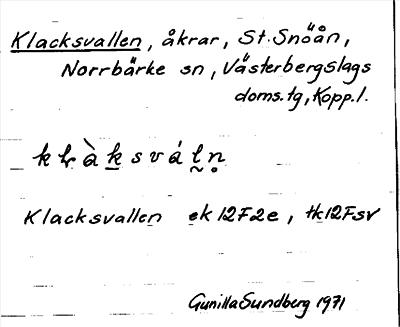 Klacksvallen, åkrar, St. Snöån,
Norrbärke sn, Västerbergslags
doms. tg, Kopp. l.
Klacksvallen ek 12F2e, tk12Fsv
Gunilla Sundberg 1971